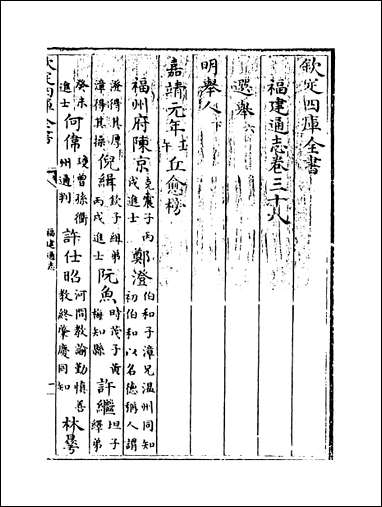 欽定四庫全書
福建通志卷三十八
選舉六
明舉人下
嘉靖元年壬午丘愈榜
福州府陳京克震子丙戌進士鄭澄伯和子漳兄温州同知初伯和以名德稱人謂
澄得其厚漳得其操倪緝欽子組弟丙戌進士阮魚時茂子黃梅知縣許繼坦子繹弟
癸未進士何偉瑗曾孫衢州通判許仕昭河間教諭勤慎善教終肇慶同知林㝵
欽定四庫全書
福建通志
一